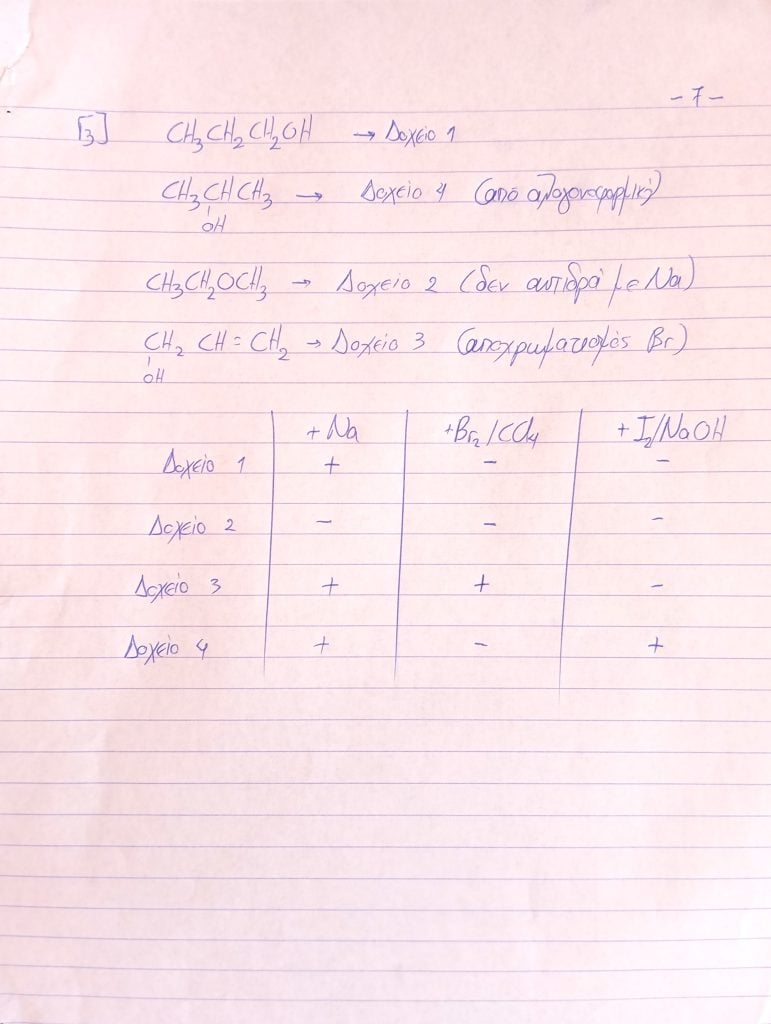 - 7 -
[3] CH₃CH₂CH₂OH → Δοχείο 1
CH₃CHCH₃ → Δοχείο 4 (από αλογονοφορμική)
OH
CH₃CH₂OCH₃ → Δοχείο 2 (δεν αντιδρά με Na)
CH₂ CH=CH₂ → Δοχείο 3 (αποχρωματισμός Br)
OH
+Na +Br₂/CCl₄ +I₂/NaOH
Δοχείο 1 + - -
Δοχείο 2 - - -
Δοχείο 3 + + -
Δοχείο 4 + - +